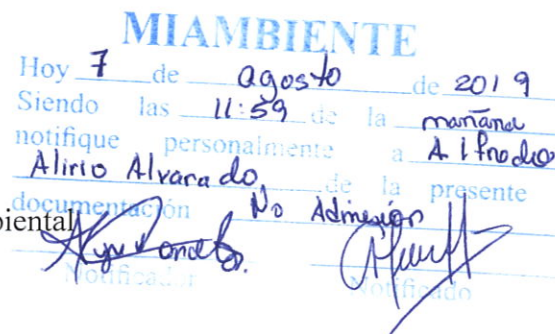 MIAMBIENTE
Hoy 7 de agosto de 2019
Siendo las 11:59 de la mañana
notifique personalmente a Alfredo
Alirio Alvarado de la presente
documentación No Admisión
biental
Notificador Notificado